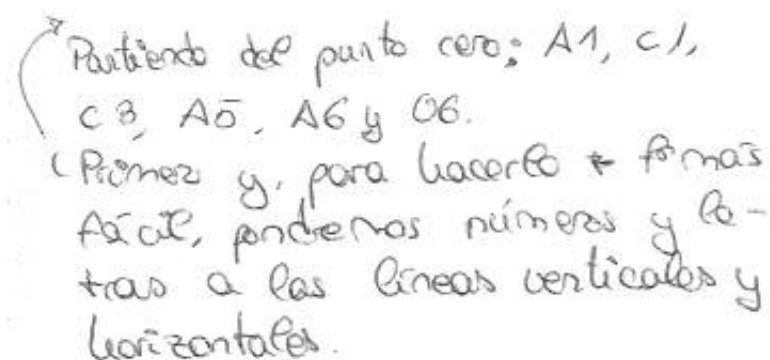 Partiendo del punto cero: A1, C1,
C3, A5, A6 y 06.
(Primero y, para hacerlo + más
fácil, pondremos números y le-
tras a las líneas verticales y
horizontales.